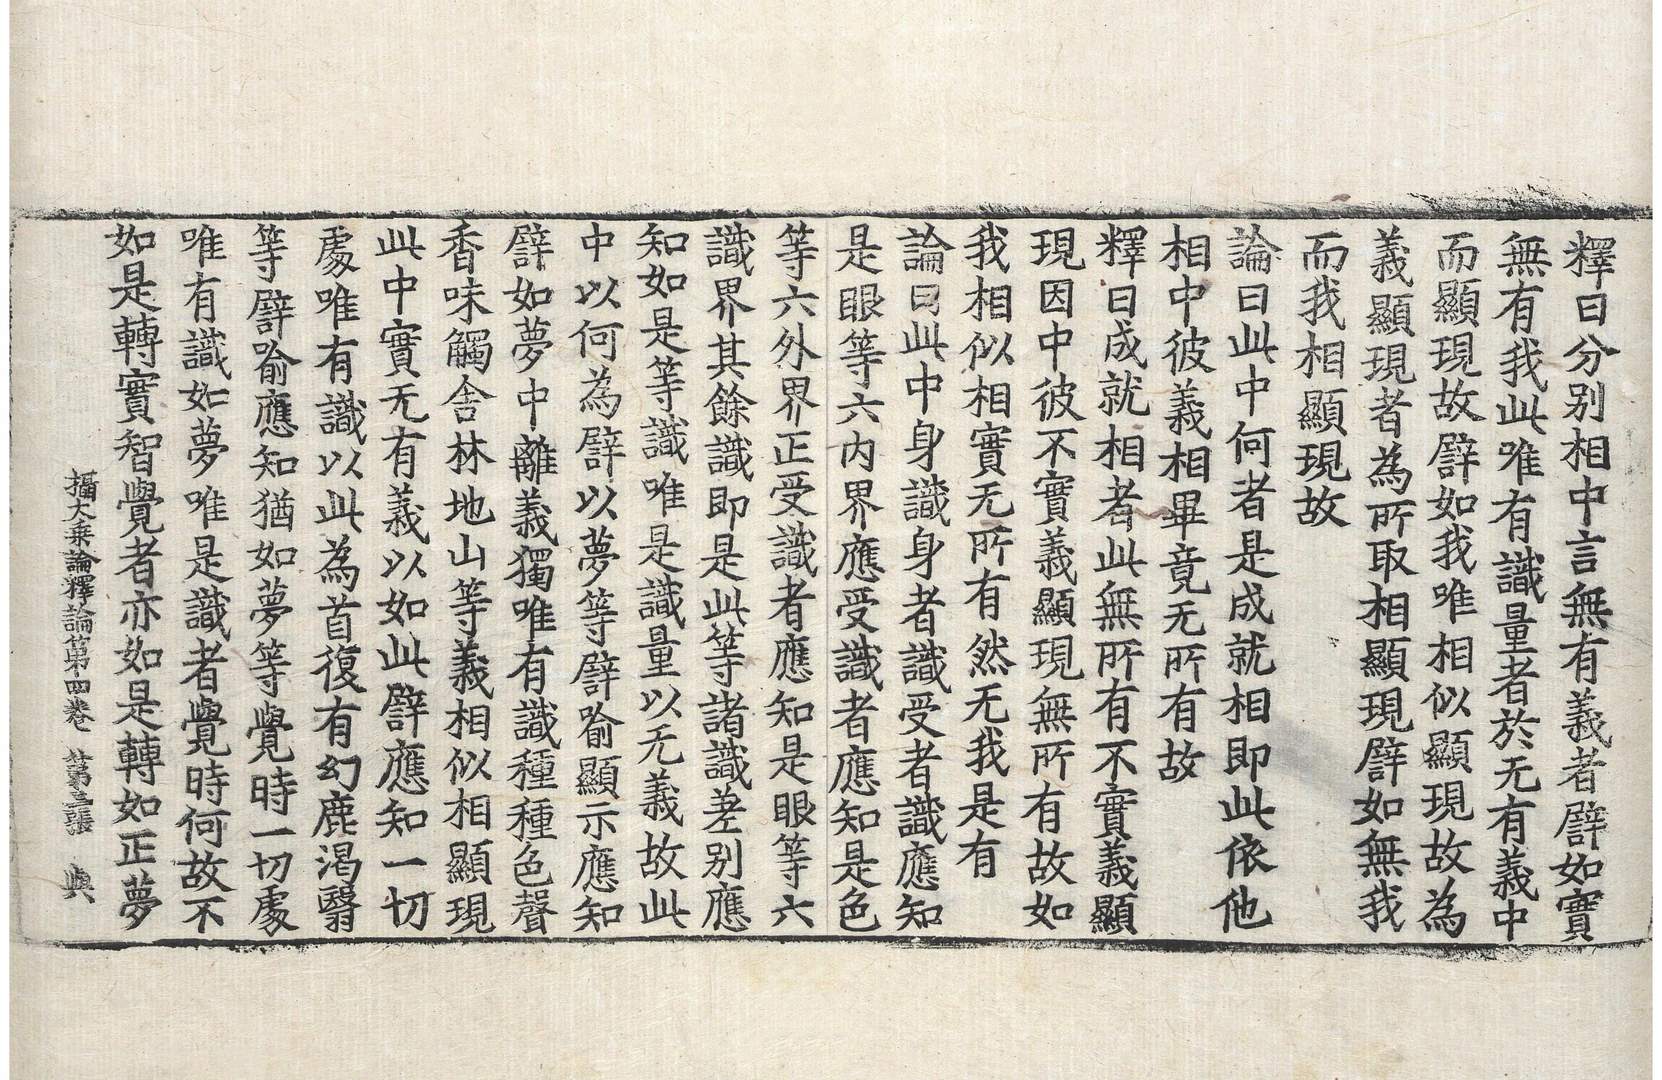 釋曰分別相中言無有義者譬如實
無有我此唯有識量者於无有義中
而顯現故譬如我唯相似顯現故為
義顯現者為所取相顯現譬如無我
而我相顯現故
論曰此中何者是成就相即此依他
相中彼義相畢竟无所有故
釋曰成就相者此無所有不實義顯
現因中彼不實義顯現無所有故如
我相似相實无所有然无我是有
論曰此中身識身者識受者識應知
是眼等六内界應受識者應知是色
等六外界正受識者應知是眼等六
識界其餘識即是此等諸識差別應
知如是等識唯是識量以无義故此
中以何為譬以夢等譬喻顯示應知
譬如夢中離義獨唯有識種種色聲
香味觸舍林地山等義相似相顯現
此中實无有義以如此譬應知一切
處唯有識以此為首復有幻鹿渴翳
等譬喻應知猶如夢等覺時一切處
唯有識如夢唯是識者覺時何故不
如是轉實智覺者亦如是轉如正夢
攝大乘論釋論第四卷　第三張　典